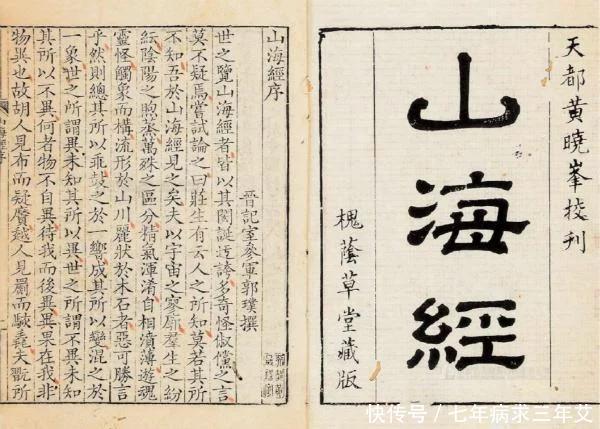 天都黃曉峯挍刊
山海經
槐蔭草堂藏版
山海經序
晉記室參軍郭璞撰
世之覽山海經者皆以其閎誕迂誇多奇怪俶儻之言
莫不疑焉嘗試論之曰莊生有云人之所知莫若其所
不知吾於山海經見之矣夫以宇宙之寥廓羣生之紛
紜陰陽之煦蒸萬殊之區分精氣渾淆自相濆薄遊魂
靈怪觸象而構流形於山川麗狀於木石者惡可勝言
乎然則總其所以乖鼓之於一響成其所以變混之於
一象世之所謂異未知其所以異世之所謂不異未知
其所以不異何者物不自異待我而後異異果在我非
物異也故胡人見布而疑黂越人見罽而駭毳夫翫所
快传号／七年病求三年艾